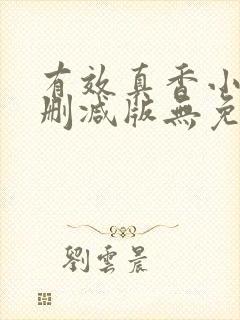 有效真香小
删减版無免
劉雲晨